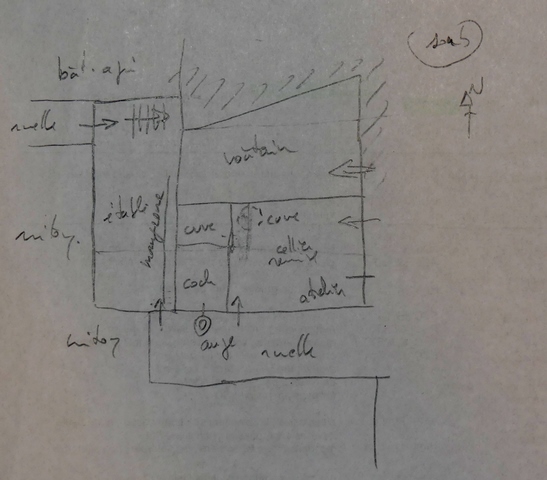 sous
N
bât. agri
ruelle
voûtain
établi
mangeoire
mitoy.
cuve
cuve
cellier
remise
coch
atelier
mitoy
auge
ruelle